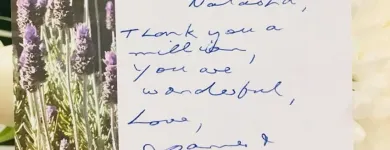 Natasha,
Thank you a
million,
You are
wonderful,
Love,